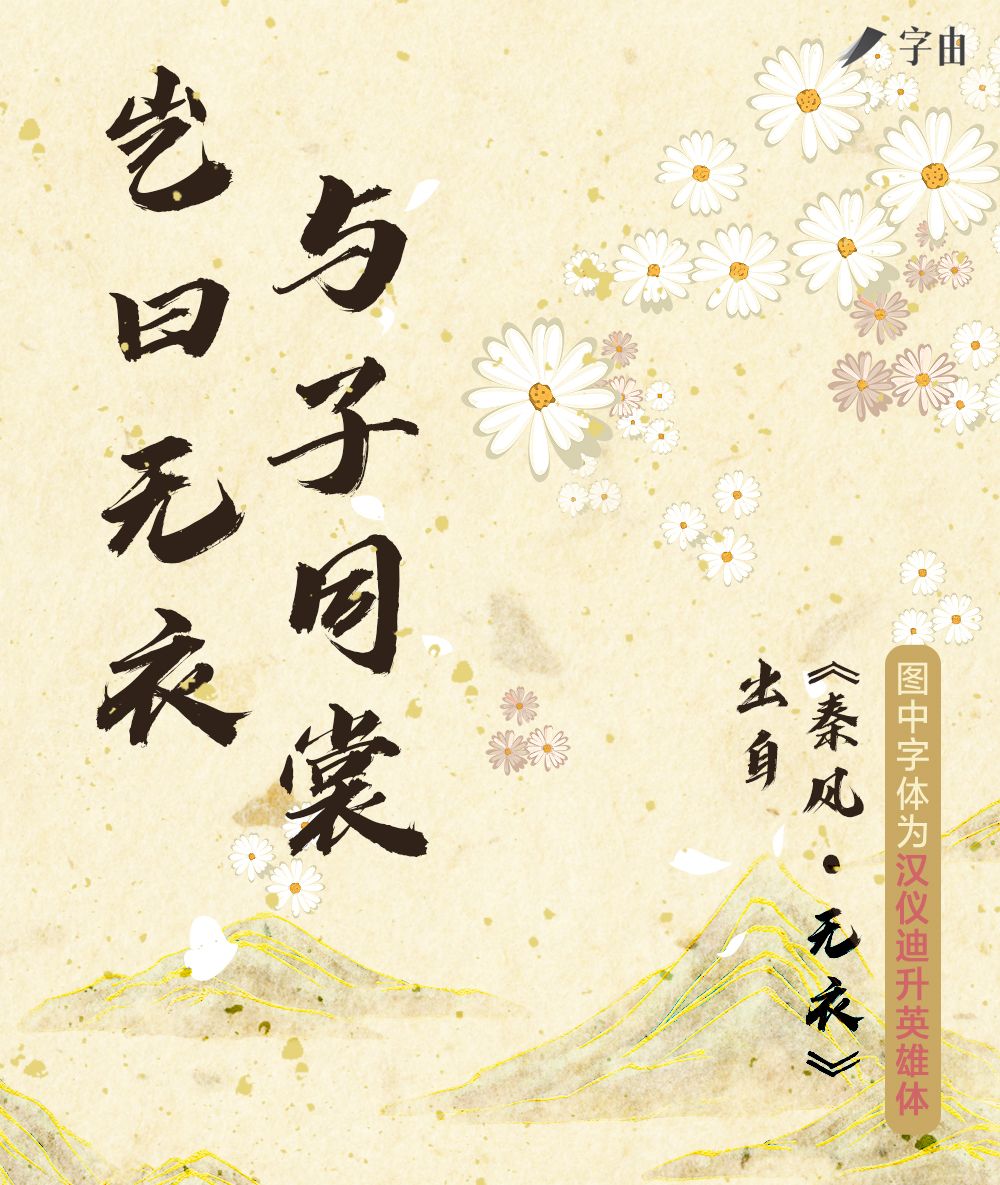 岂曰无衣
与子同裳
出身
《秦风·无衣》
图中字体为汉仪迪升英雄体
字由